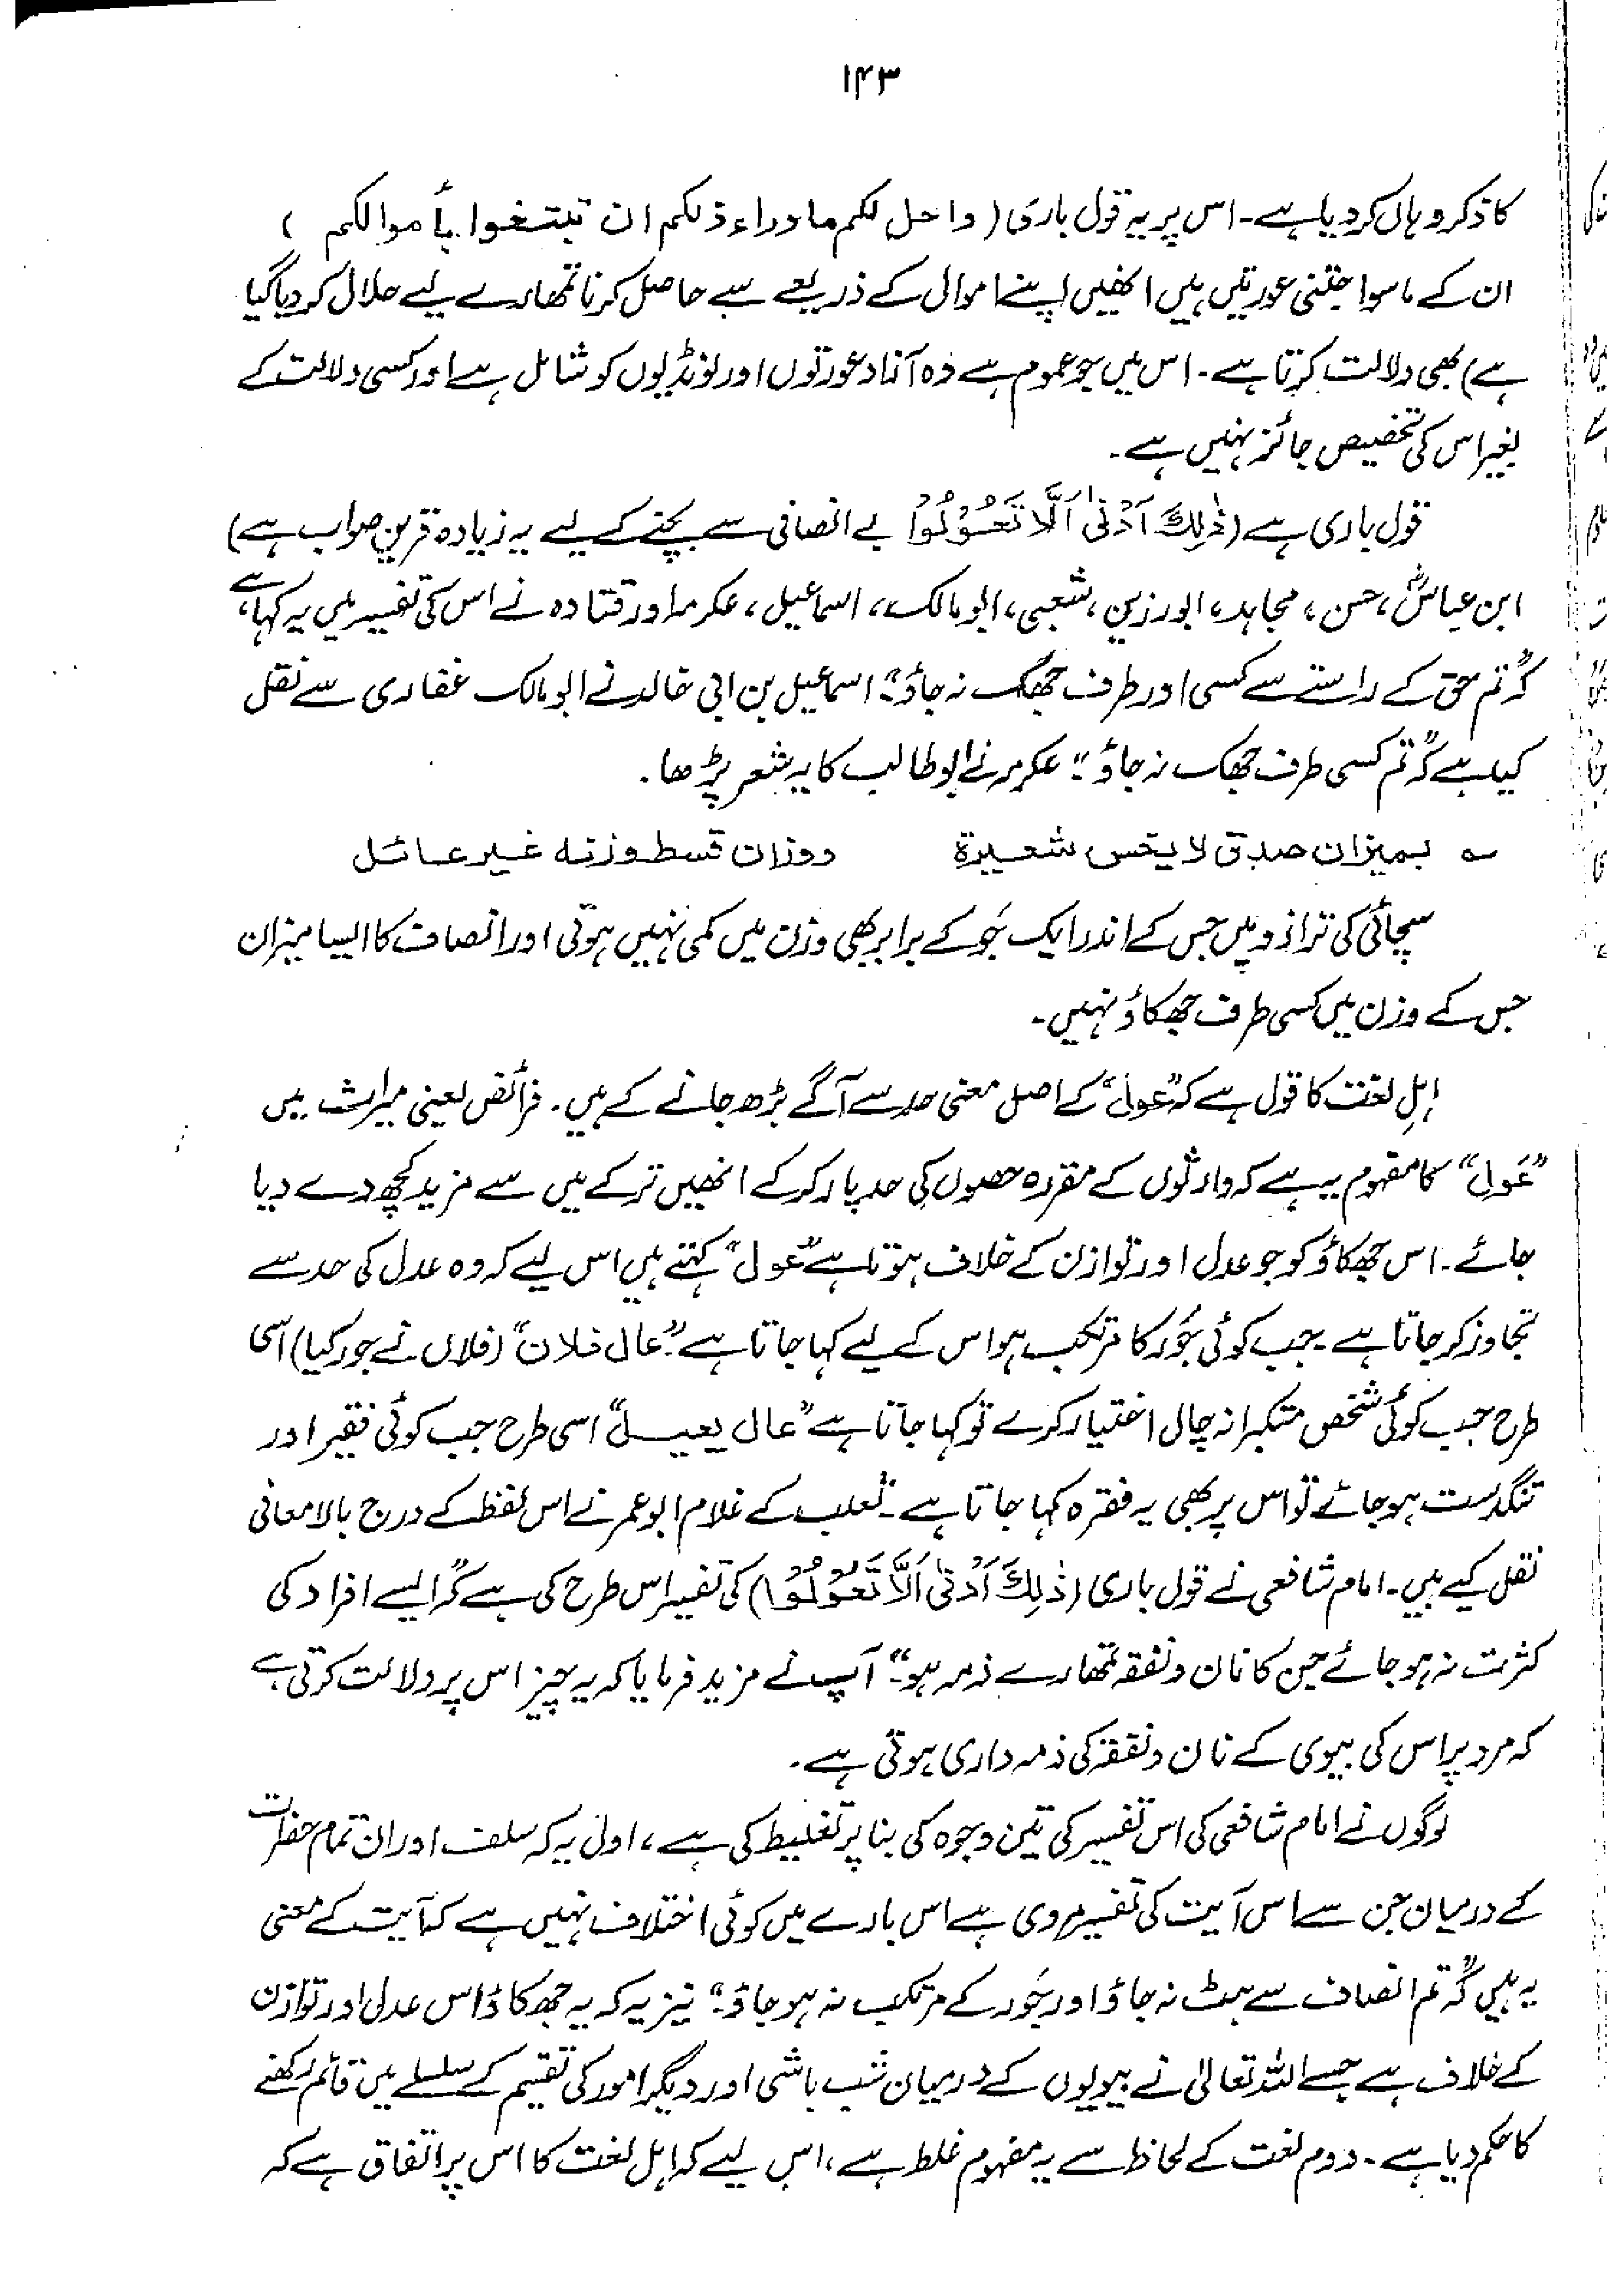 ۱۴۳
کا ذکر وہاں کر دیا ہے۔ اس پر یہ قول باری (واحل لکم ما وراء ذلکم ان تبتغوا بأموالکم )
ان کے ماسوا جتنی عورتیں ہیں انھیں اپنے اموال کے ذریعے سے حاصل کرنا تمھارے لیے حلال کر دیا گیا
ہے) بھی دلالت کرتا ہے۔ اس میں جو عموم ہے وہ آزاد عورتوں اور لونڈیوں کو شامل ہے اور کسی دلالت کے
بغیر اس کی تخصیص جائز نہیں ہے۔
قول باری ہے (ذٰلِکَ اَدْنیٰ اَلَّا تَعُوْلُوْا بے انصافی سے بچنے کے لیے یہ زیادہ قرین صواب ہے)
ابن عباسؓ، حسن، مجاہد، ابورزین، شعبی، ابو مالک، اسماعیل، عکرمہ اور قتادہ نے اس کی تفسیر میں یہ کہا ہے،
کہ "تم حق کے راستے سے کسی اور طرف جھک نہ جاؤ" اسماعیل بن ابی خالد نے ابو مالک غفاری سے نقل
کیا ہے کہ "تم کسی طرف جھک نہ جاؤ" عکرمہ نے ابو طالب کا یہ شعر پڑھا۔
؎ بمیزان صدق لا یخس شعیرة ووزان قسط وزنه غیر عائل
سچائی کی ترازو میں جس کے اندر ایک جَو کے برابر بھی وزن میں کمی نہیں ہوتی اور انصاف کا ایسا میزان
جس کے وزن میں کسی طرف جھکاؤ نہیں۔
اہلِ لغت کا قول ہے کہ "عول" کے اصل معنی حد سے آگے بڑھ جانے کے ہیں۔ فرائض یعنی میراث میں
"عَول" کا مفہوم یہ ہے کہ وارثوں کے مقررہ حصوں کی حد پار کر کے انھیں ترکے میں سے مزید کچھ دے دیا
جائے۔ اس جھکاؤ کو جو عدل اور توازن کے خلاف ہوتا ہے "عول" کہتے ہیں اس لیے کہ وہ عدل کی حد سے
تجاوز کر جاتا ہے۔ جب کوئی جَور کا مرتکب ہو اس کے لیے کہا جاتا ہے "عال فلان" (فلاں نے جور کیا) اسی
طرح جب کوئی شخص متکبرانہ چال اختیار کرے تو کہا جاتا ہے "عال یعیل" اسی طرح جب کوئی فقیر اور
تنگدست ہو جائے تو اس پر بھی یہ فقرہ کہا جاتا ہے۔ ثعلب کے غلام ابو عمر نے اس لفظ کے درج بالا معانی
نقل کیے ہیں۔ امام شافعی نے قول باری (ذٰلِکَ اَدْنیٰ اَلَّا تَعُوْلُوْا) کی تفسیر اس طرح کی ہے کہ "ایسے افراد کی
کثرت نہ ہو جائے جن کا نان و نفقہ تمھارے ذمہ ہو" آپ نے مزید فرمایا کہ یہ چیز اس پر دلالت کرتی ہے
کہ مرد پر اس کی بیوی کے نان و نفقہ کی ذمہ داری ہوتی ہے۔
لوگوں نے امام شافعی کی اس تفسیر کی تین وجوہ کی بنا پر تغلیط کی ہے، اول یہ کہ سلف اور ان تمام حضرات
کے درمیان جن سے اس آیت کی تفسیر مروی ہے اس بارے میں کوئی اختلاف نہیں ہے کہ آیت کے معنی
یہ ہیں کہ "تم انصاف سے ہٹ نہ جاؤ اور جَور کے مرتکب نہ ہو جاؤ" نیز یہ کہ یہ جھکاؤ اس عدل اور توازن
کے خلاف ہے جسے اللہ تعالیٰ نے بیویوں کے درمیان شب باشی اور دیگر امور کی تقسیم کے سلسلے میں قائم رکھنے
کا حکم دیا ہے۔ دوم لغت کے لحاظ سے یہ مفہوم غلط ہے، اس لیے کہ اہل لغت کا اس پر اتفاق ہے کہ